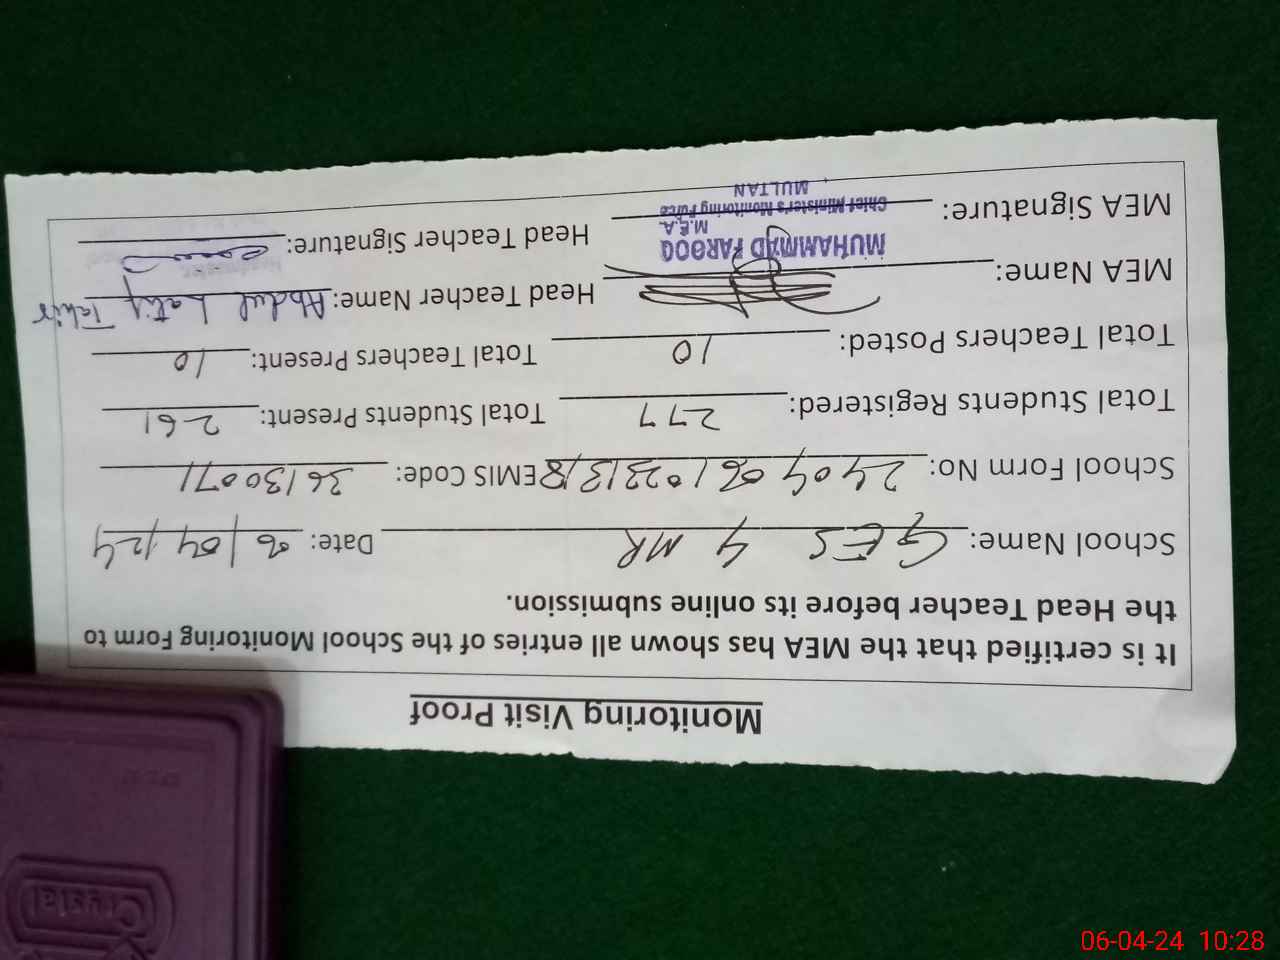 Monitoring Visit Proof
It is certified that the MEA has shown all entries of the School Monitoring Form to
the Head Teacher before its online submission.
School Name: GES 4 MR Date: 06/04/24
School Form No: 2404061022313/8 EMIS Code: 36130071
Total Students Registered: 277 Total Students Present: 261
Total Teachers Posted: 10 Total Teachers Present: 10
MEA Name: Head Teacher Name: Abdul Latif Tahir
MUHAMMAD FAROOQ
M.E.A.
MEA Signature: Head Teacher Signature:
Chief Minister's Monitoring Force
MULTAN
Headmaster
Crystal
06-04-24 10:28